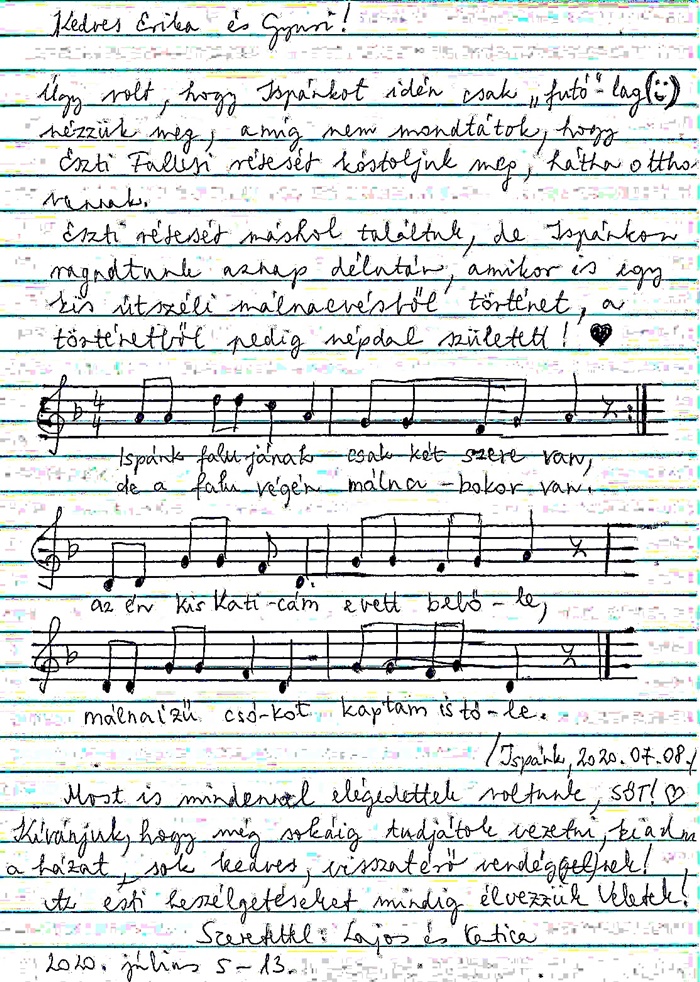 Kedves Erika és Gyuri!
Úgy volt, hogy Ispánkot idén csak „futó"-lag(😊)
nézzük meg, amíg nem mondtátok, hogy
Eszti Falusi rétesét kóstoljuk meg, hátha ottho
vannak.
Eszti rétesét máshol találtuk, de Ispánkon
ragadtunk aznap délután, amikor is egy
kis útszéli málnaevésből történet, a
történetből pedig népdal született! ♥
4
4
Ispánk falujának csak két szere van,
de a falu végén málna-bokor van.
az én kis Kati-cám evett belő-le,
málnaízű csó-kot kaptam is tő-le.
/Ispánk, 2020.07.08./
Most is mindennel elégedettek voltunk, SŐT! ♡
Kívánjuk, hogy még sokáig tudjátok vezetni, kiadn
a házat, sok kedves, visszatérő
Az esti beszélgetéseket mindig élvezzük Veletek!
Szeretettel: Lajos és Katica
2020. július 5-13.